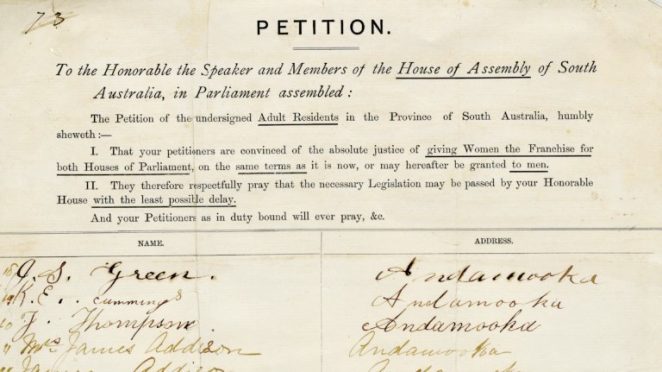 73
PETITION.
To the Honorable the Speaker and Members of the House of Assembly of South
Australia, in Parliament assembled:
The Petition of the undersigned Adult Residents in the Province of South Australia, humbly
sheweth:—
I. That your petitioners are convinced of the absolute justice of giving Women the Franchise for
both Houses of Parliament, on the same terms as it is now, or may hereafter be granted to men.
II. They therefore respectfully pray that the necessary Legislation may be passed by your Honorable
House with the least possible delay.
And your Petitioners as in duty bound will ever pray, &c.
NAME. ADDRESS.
S. Green. Andamooka
K. E. Cummings Andamooka
J. Thompson. Andamooka
Mrs James Addison Andamooka
James Addison Andamooka